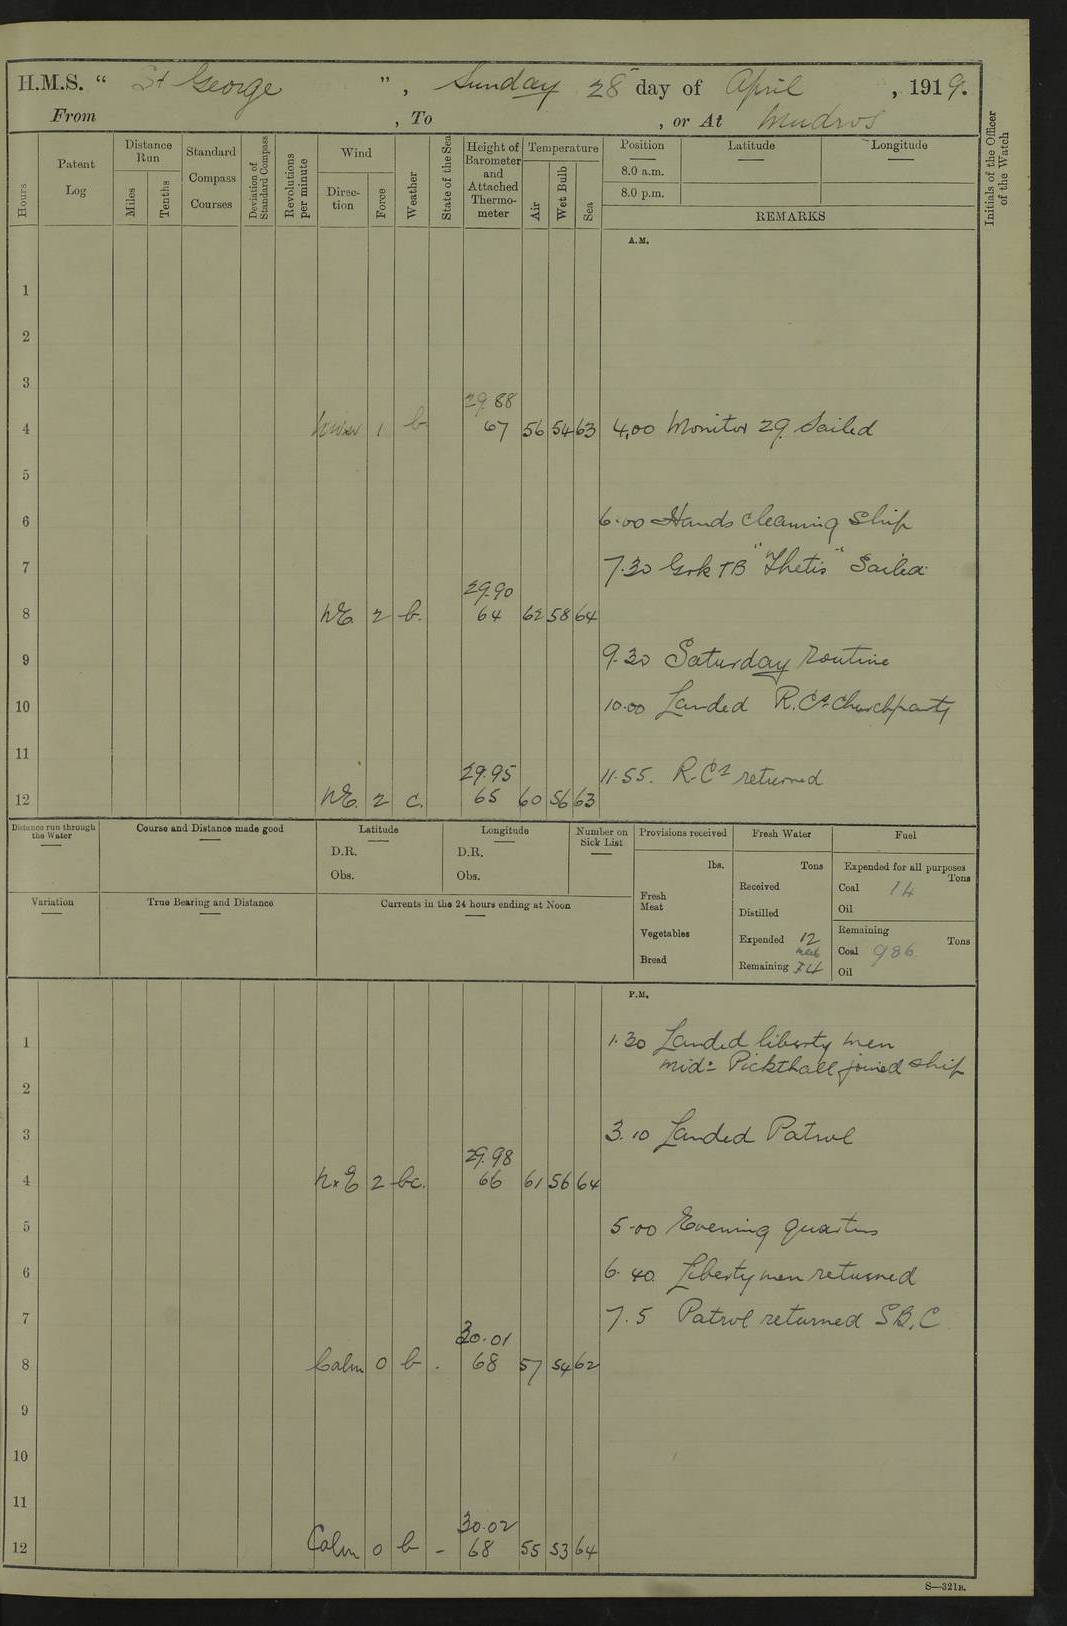 H.M.S. " St George ", Sunday 28 day of April, 1919.
From , To , or At Mudros
Hours
Patent Log
Distance Run
Miles
Tenths
Standard Compass Courses
Deviation of Standard Compass
Revolutions per minute
Wind
Direc-tion
Force
Weather
State of the Sea
Height of Barometer and Attached Thermo-meter
Temperature
Air
Wet Bulb
Sea
Position
8.0 a.m.
8.0 p.m.
Latitude
Longitude
REMARKS
Initials of the Officer of the Watch
A.M.
1
2
3
29.88
4 1 b 67 56 54 63 4.00 Monitor 29 Sailed
5
6 6.00 Hands cleaning Ship
7 7.30 Grk TB "Thetis" Sailed
29.90
8 NE. 2 b. 64 62 58 64
9 9.30 Saturday routine
10 10.00 Landed R.Cs. Church party
11
29.95 11.55. R.Cs returned
12 NE. 2 c. 65 60 56 63
Distance run through the Water
Course and Distance made good
Latitude
D.R.
Obs.
Longitude
D.R.
Obs.
Number on Sick List
Provisions received
lbs.
Fresh Meat
Vegetables
Bread
Fresh Water
Tons
Received
Distilled
Expended 12
Remaining 74
Fuel
Expended for all purposes
Tons
Coal 14
Oil
Remaining
Tons
Coal 986
Oil
Variation
True Bearing and Distance
Currents in the 24 hours ending at Noon
P.M.
1 1.30 Landed liberty men
Mid: Pickthall joined ship
2
3 3.10 Landed Patrol
29.98
4 NxE 2 bc. 66 61 56 64
5 5.00 Evening quarters
6 6.40. Liberty men returned
7 7.5 Patrol returned S.B.C
30.01
8 Calm 0 b - 68 57 54 62
9
10
11
30.02
12 Calm 0 b - 68 55 53 64
S—321B.